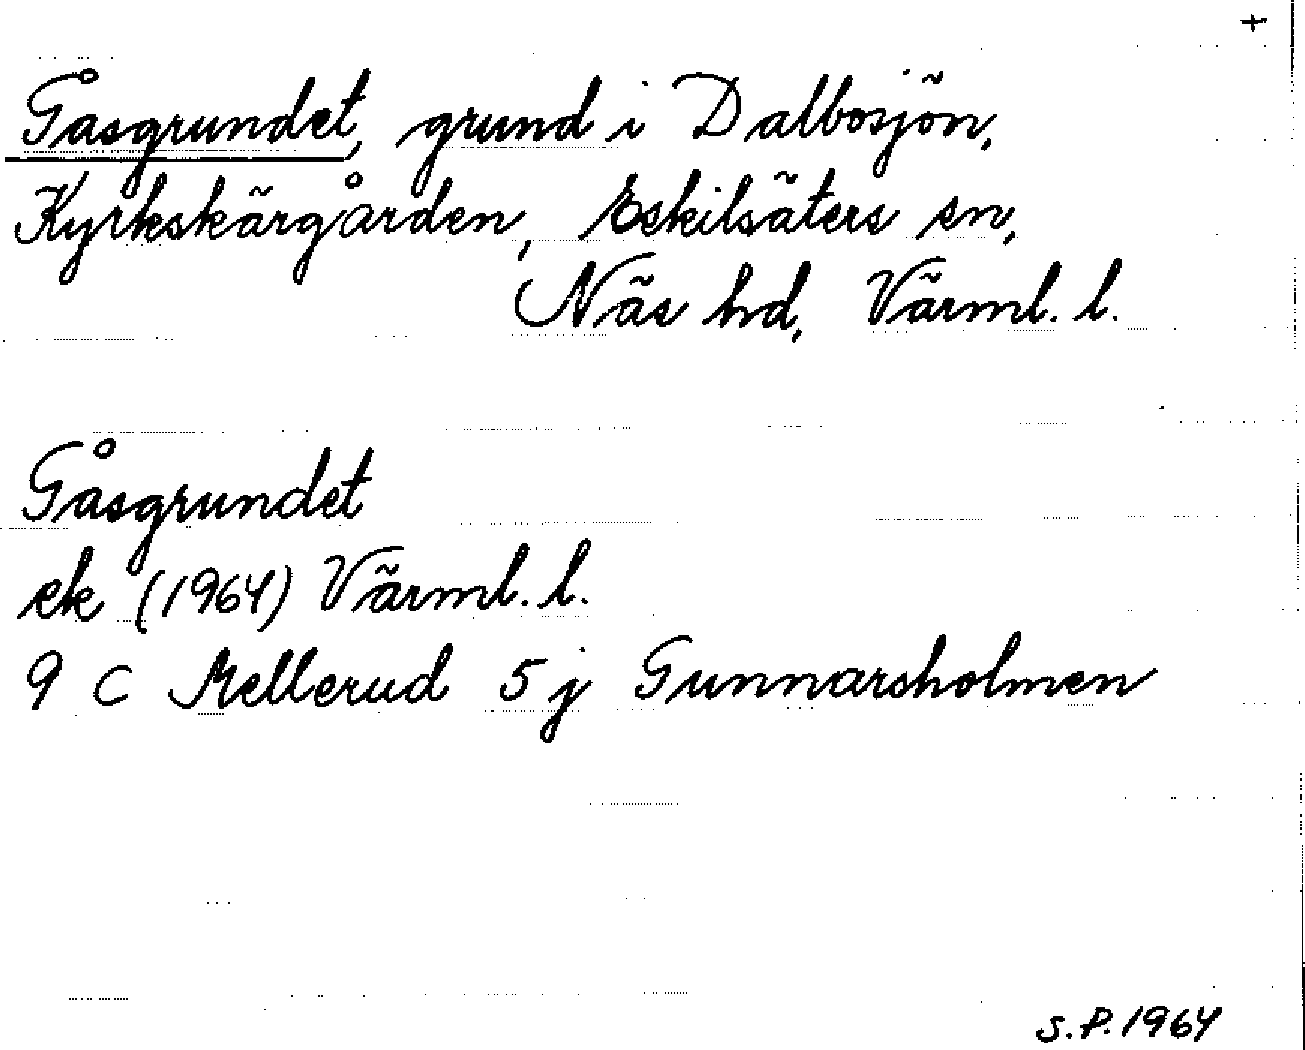 +
Gåsgrundet, grund i Dalbosjön,
Kyrkskärgården, Eskilsäters sn,
Näs hd, Värml. l.
Gåsgrundet
ek (1964) Värml. l.
9 C Mellerud 5 j Gunnarsholmen
S.P. 1964